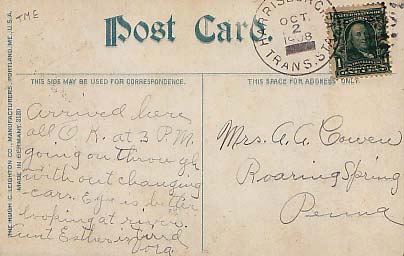 TME
Post Card.
HARRISBURG
OCT.
2
1908
TRANS. STA.
1
THIS SIDE MAY BE USED FOR CORRESPONDENCE.
THIS SPACE FOR ADDRESS ONLY.
THE HUGH C. LEIGHTON CO., MANUFACTURERS, PORTLAND, ME., U.S.A.
MADE IN GERMANY
Arrived here
all O.K. at 3 P.M.
going on through
without changing
cars. Eye is better
looping at
Aunt Esther is tired
Mrs. A. A. Cowen
Roaring Spring
Penna